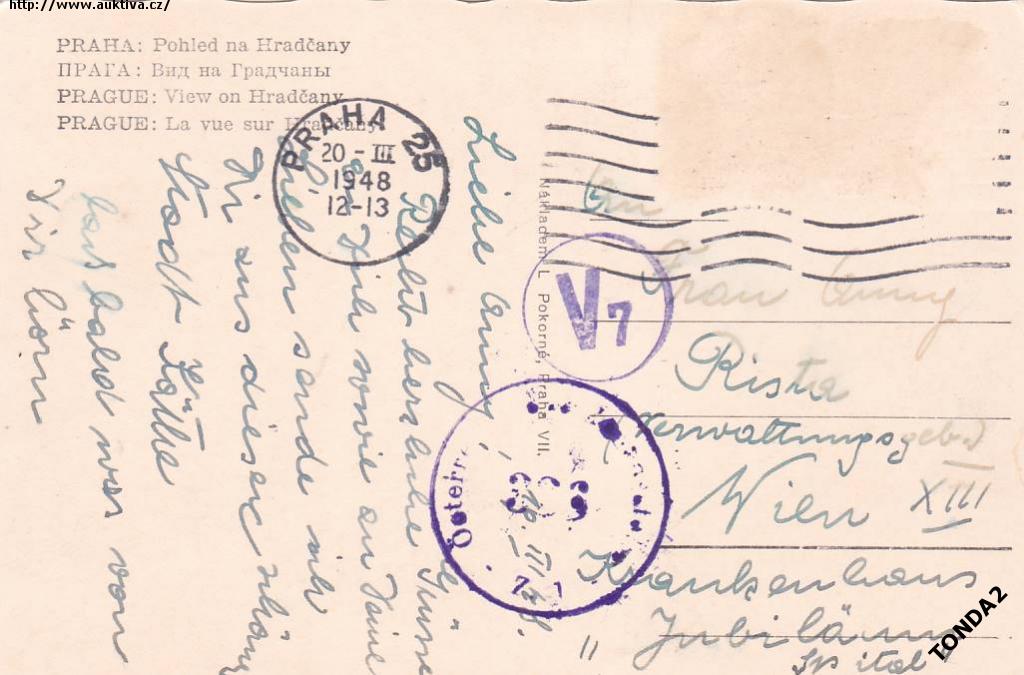 http://www.auktiva.cz/
PRAHA: Pohled na Hradčany
ПРАГА: Вид на Градчаны
PRAGUE: View on Hradčany
PRAGUE: La vue sur Hradčany
PRAHA 25
20-III
1948
12-13
Liebe Anny,
Recht herzliche Grüsse
Dich sowie an Deine
Lieben sende ich
Dir aus dieser schönen
Stadt Käthe
lass bald was von
Dir hören
Nákladem L. Pokorné, Praha VII.
V7
Österr
An
Frau Anny
Rista
Verwaltungsgeb.
Wien XIII
Krankenhaus
" Jubiläums
Spital "
TONDA2